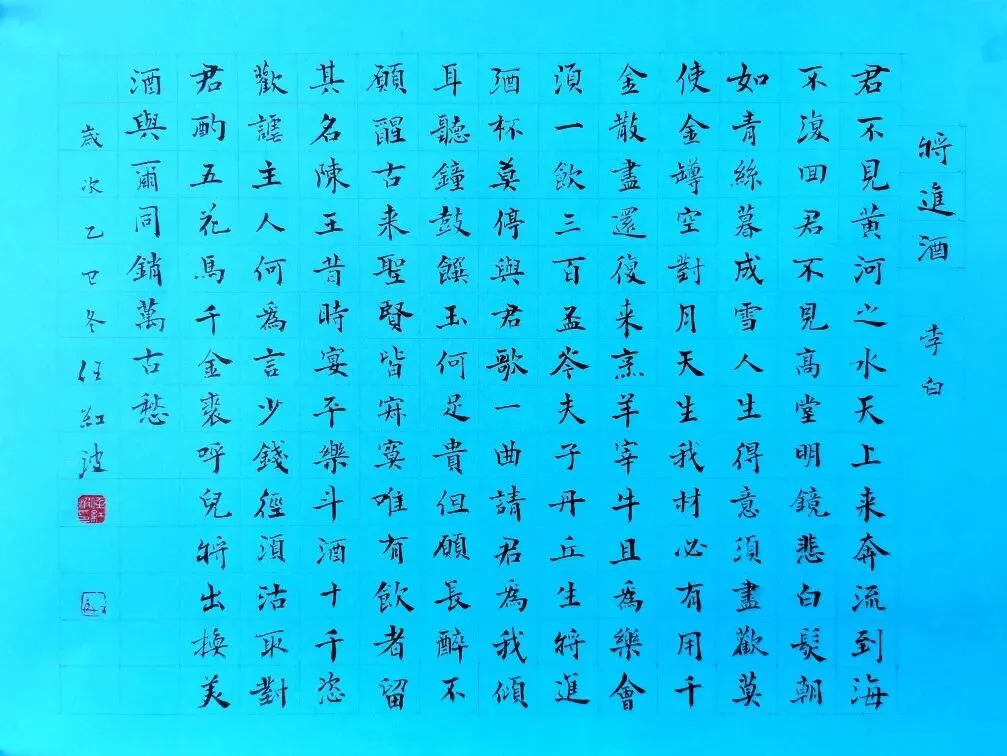 將進酒 李白
君不見黃河之水天上来奔流到海
不復回君不見高堂明鏡悲白髮朝
如青絲暮成雪人生得意須盡歡莫
使金罇空對月天生我材必有用千
金散盡還復来烹羊宰牛且為樂會
須一飲三百盃岑夫子丹丘生將進
酒杯莫停與君歌一曲請君為我傾
耳聽鐘鼓饌玉何足貴但願長醉不
願醒古来聖賢皆寂寞唯有飲者留
其名陳王昔時宴平樂斗酒十千恣
歡謔主人何為言少錢徑須沽取對
君酌五花馬千金裘呼兒將出換美
酒與爾同銷萬古愁
歲次乙巳冬任紅波